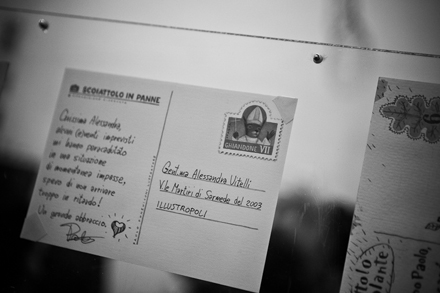 SCOIATTOLO IN PANNE
Carissima Alessandra,
alcuni (e)venti imprevisti
mi hanno paracadutato
in una situazione
di momentanea impasse,
spero di non arrivare
troppo in ritardo!
Un grande abbraccio,
Paolo
GHIANDONE VII
Gent.ma Alessandra Vitelli
V.le Martiri di Sarmede del 2003
ILLUSTROPOLI
no Paolo,
tolo
lante!